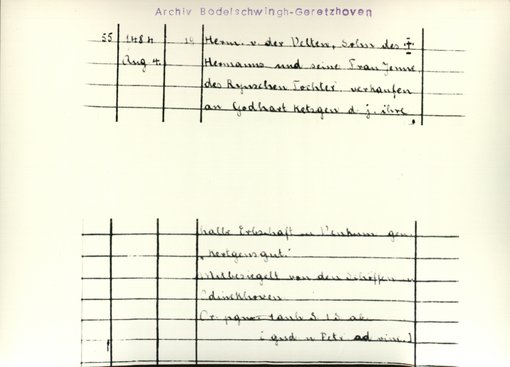 Archiv Bodelschwingh-Geretzhoven
55 1484 19 Herm. v. der Vellen, Sohn des ‡
Aug 4. Hermanns und seine Frau Jenne,
des Rynschen Tochter, verkaufen
an Godhart Ketsgen d. j. ihre
halbe Erbschaft zu Venkum gen.
"Kertgensgut."
Mitbesiegelt von den Schöffen
Edinckhoven.
Or. pgm. 1 anh. S. 1 S. ab.